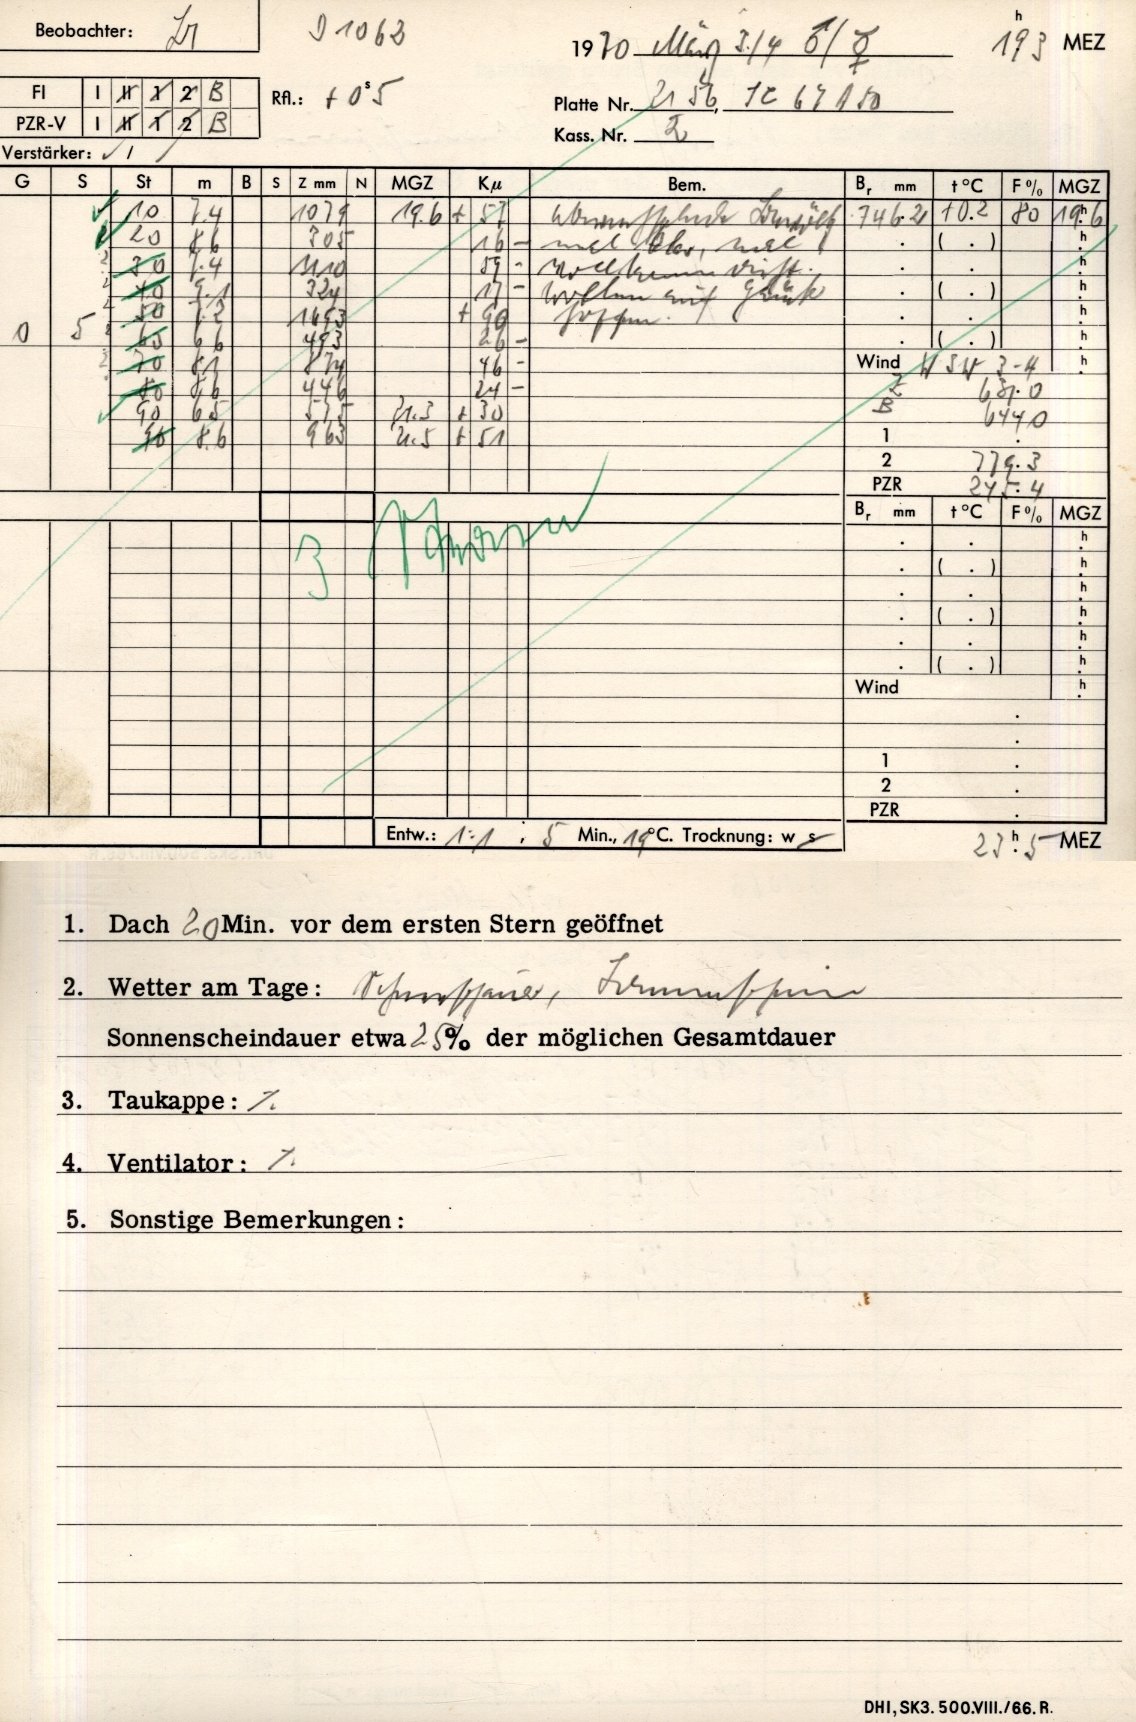 Beobachter:
D 1062
1970 März 3./4 ♂/☿
19h3 MEZ
FI I II 1 2 B
PZR-V I II 1 2 B
Rfl.: + 0s5
Platte Nr. 2156,
Kass. Nr. 2
Verstärker: / I /
G S St m B S Z mm N MGZ Kμ Bem. Br mm t°C F% MGZ
10 7.4 1079 19.6 + 57 746.2 +0.2 80 19h6
20 8.6 305 16 - . ( . ) h
30 7.4 1110 59 - . . h
40 9.1 324 17 - wollen auf Glück . ( . ) h
50 7.2 1693 + 90 hoffen. . . h
0 5 65 6.6 493 26 - . ( . ) h
70 8.1 874 46 - Wind WSW 3-4 h
80 8.6 446 24 -
90 6.5 575 21.3 + 30 B 644.0
90 8.6 963 21.5 + 51 1 .
2 779.3
PZR 245.4
Br mm t°C F% MGZ
3
. . h
. ( . ) h
. . h
. ( . ) h
. . h
. ( . ) h
Wind h
.
.
1 .
2 .
PZR .
Entw.: 1:1 ; 5 Min., 19°C. Trocknung: w s
23h5 MEZ
1. Dach 20 Min. vor dem ersten Stern geöffnet
2. Wetter am Tage: Schneeschauer, Sonnenschein
Sonnenscheindauer etwa 25% der möglichen Gesamtdauer
3. Taukappe: /.
4. Ventilator: /.
5. Sonstige Bemerkungen:
DHI, SK3. 500.VIII./66. R.